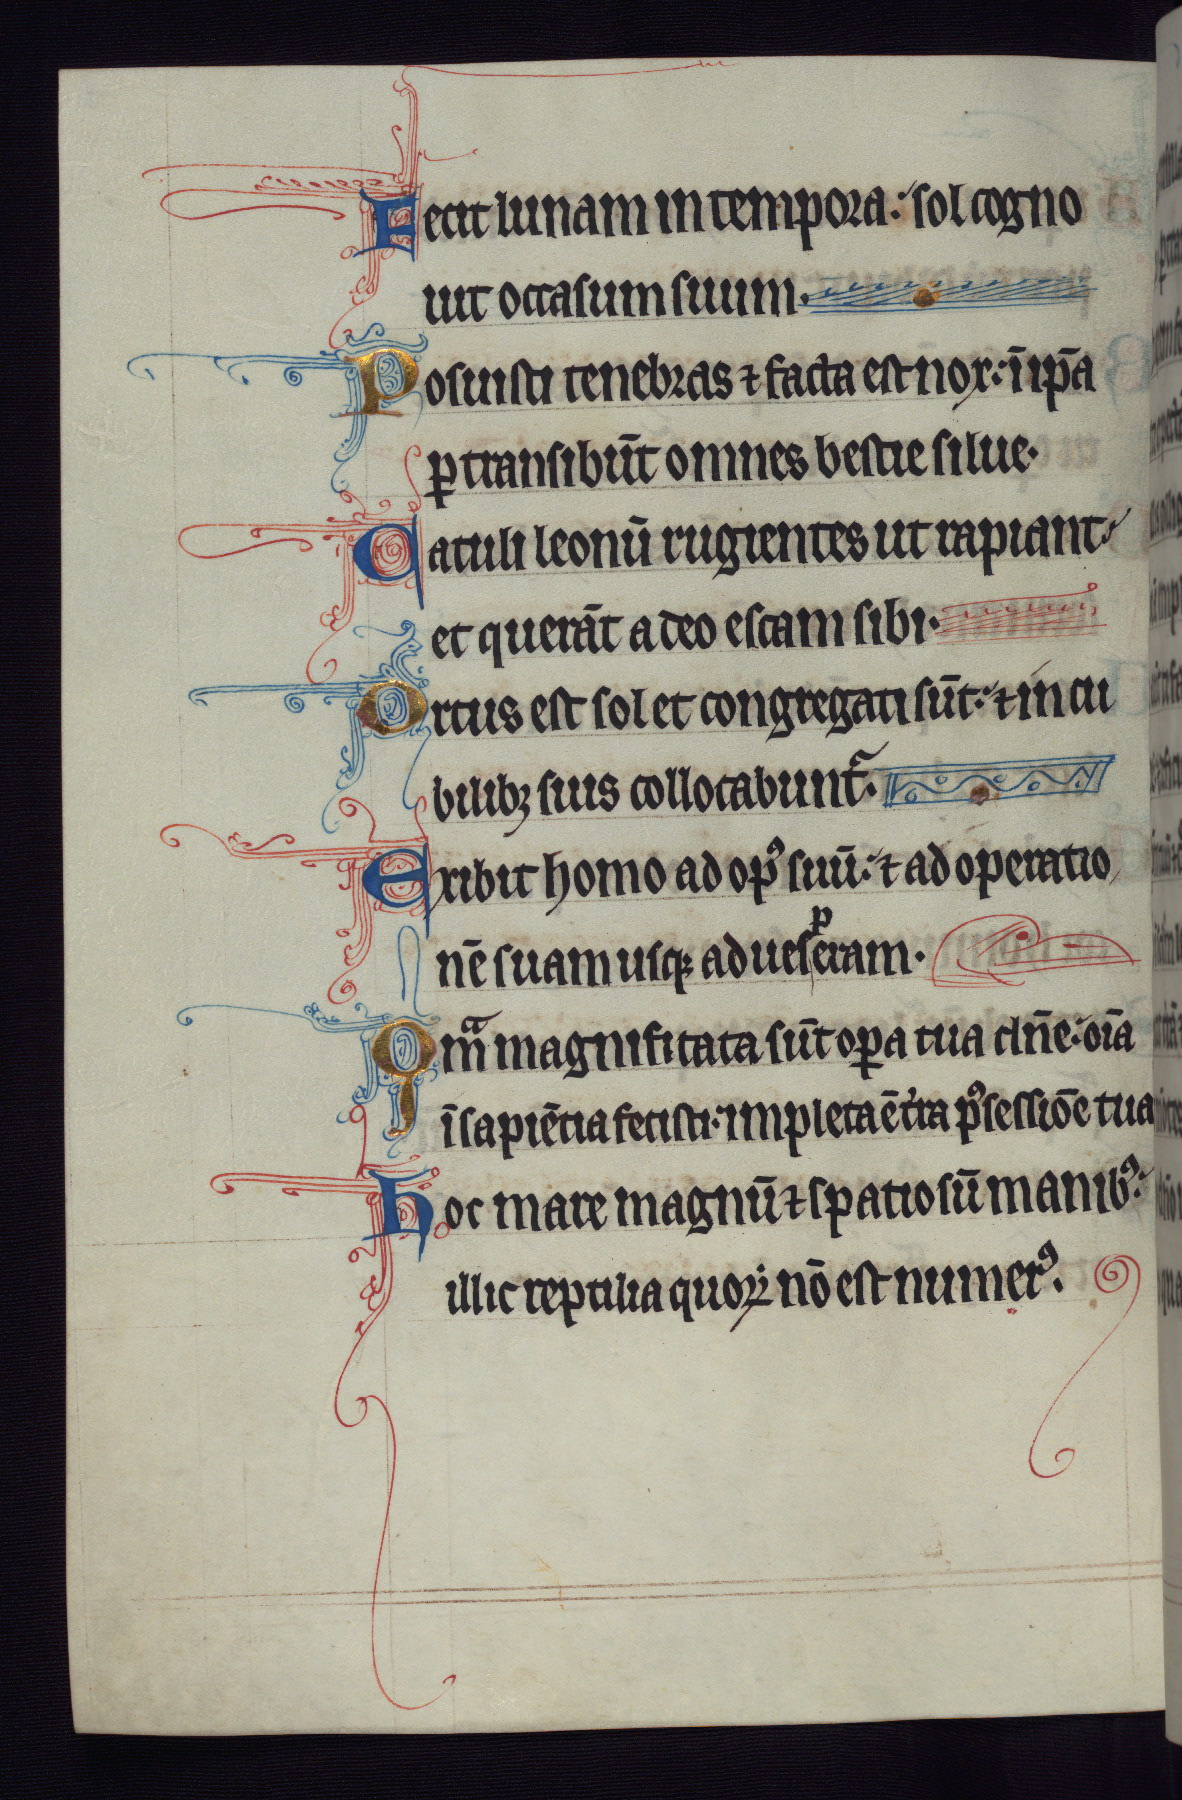 Fecit lunam in tempora: sol cogno
uit occasum suum.
Posuisti tenebras ⁊ facta est nox: ī ip̄a
ꝑtransibūt omnes bestie silue.
Catuli leonū rugientes ut rapiant:
et querāt a deo escam sibi.
Ortus est sol et congregati sūt: ⁊ in cu
bilibꝫ suis collocabunt᷑.
Exibit homo ad opꝰ suū: ⁊ ad operatio
nē suam usqꝫ ad uesperam.
Qm̄ magnificata sūt oꝑa tua dn̄e: oīa
ī sapiētia fecisti. impleta ē t̄ra pꝰsessiōe tua
Hoc mare magnū ⁊ spatiosū manibꝰ:
illic reptilia quoꝝ nō est numerꝰ.